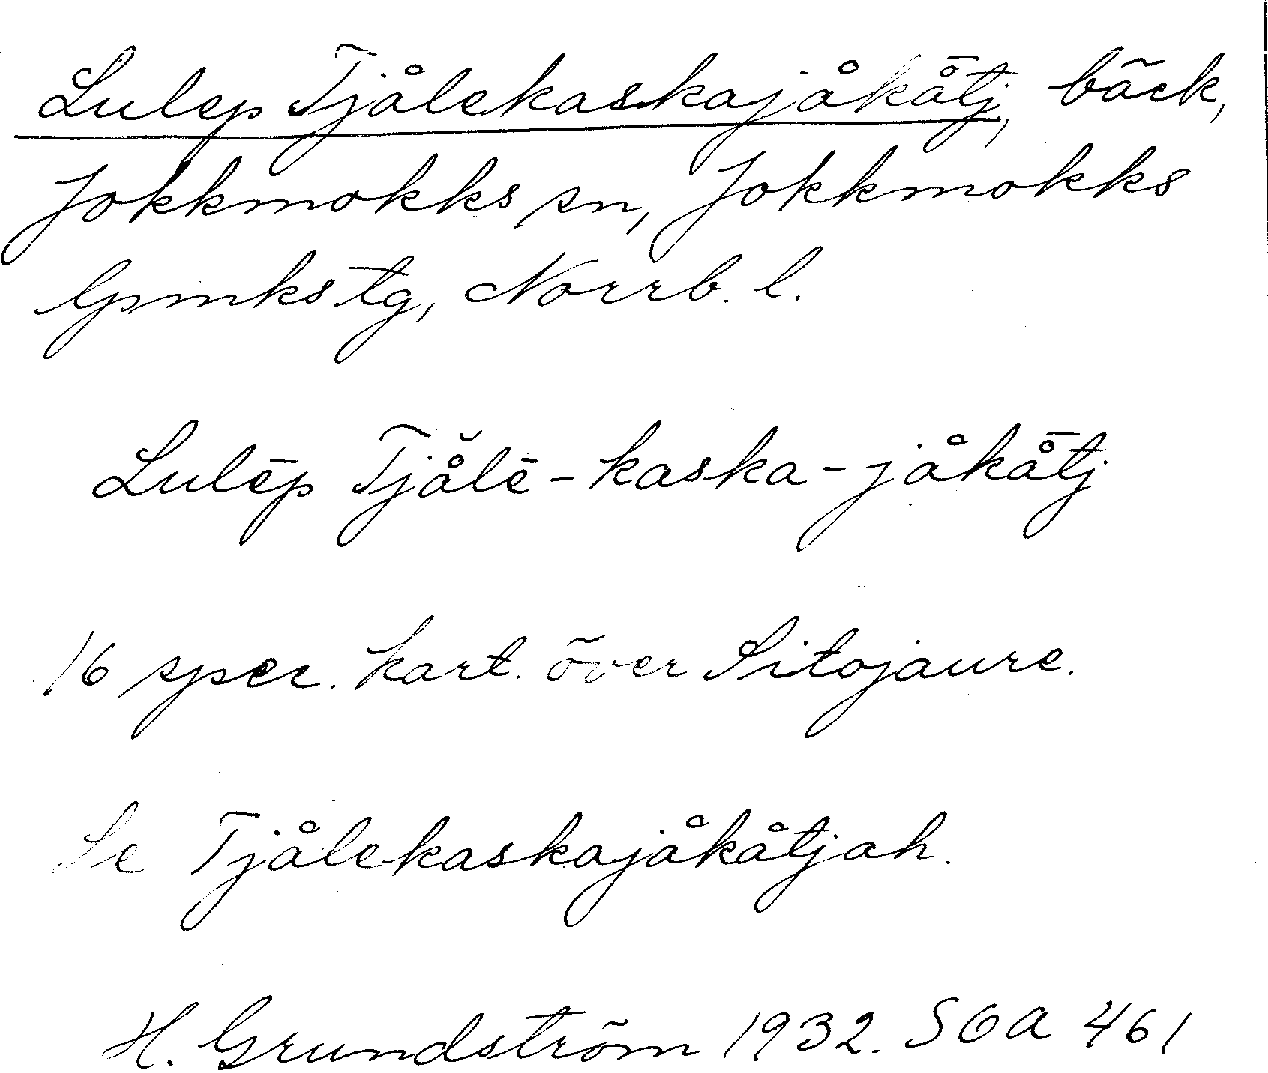 Lulep Tjålekaskajåkåtj, bäck,
Jokkmokks sn, Jokkmokks
lpmks tg, Norrb. l.
Lulēp Tjå̆lē-kaska-jåkå̄tj
16 spec. kart. över Sitojaure.
Se Tjålekaskajåkåtjah.
H. Grundström 1932. SOA 461